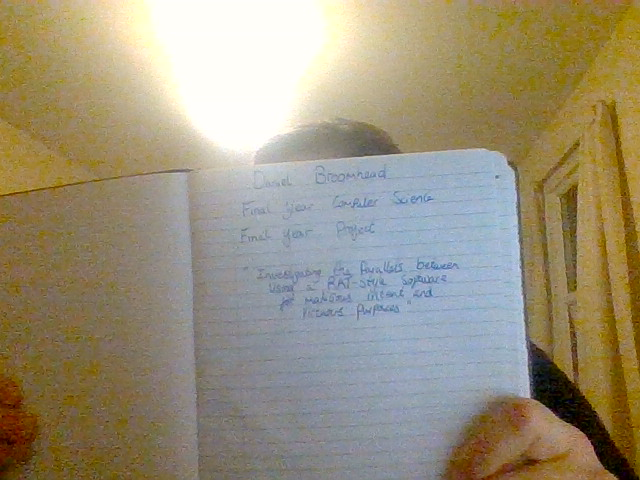 Daniel Broomhead
Final year Computer Science
Final year Project
"Investigating the Parallels between
using a RAT-Style Software
for malicious intent and
Virtuous purposes"